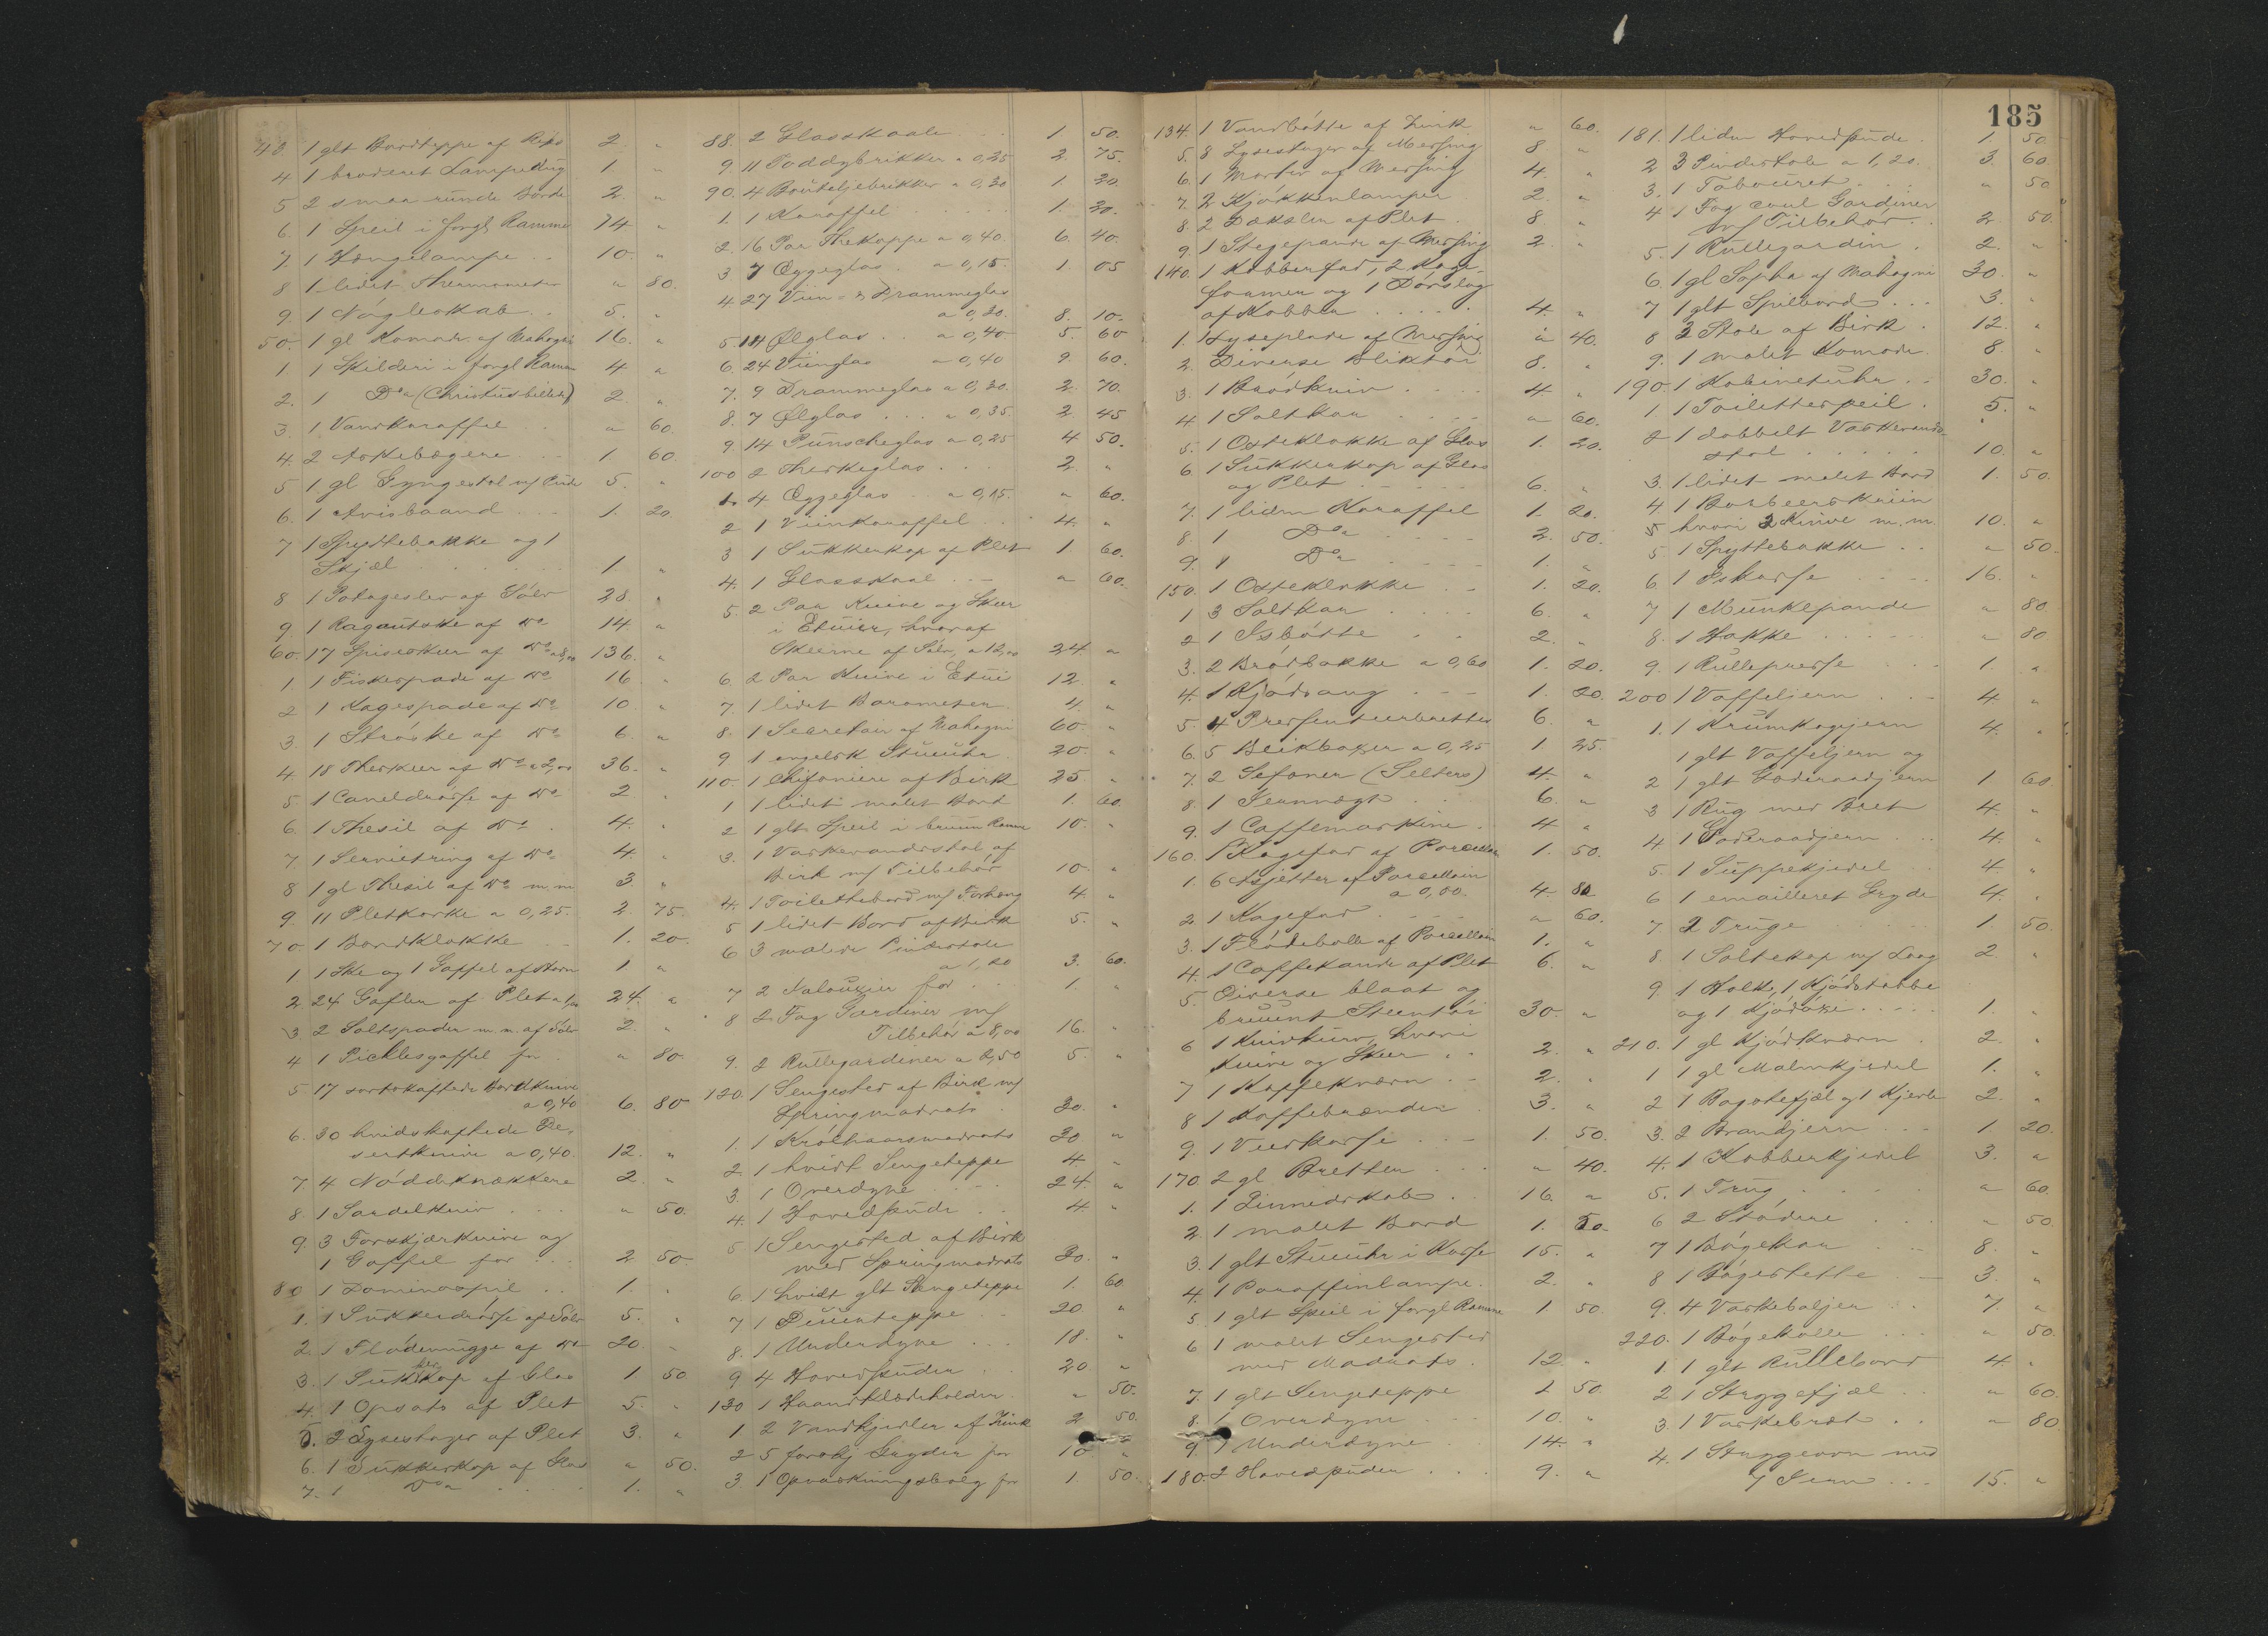 185
43. 1 glt Bordteppe af Rips 2. "
4 1 broderet Lampedug 1. "
5 2 smaa runde Borde 2. "
6. 1 Speil i forgl Ramme 14 "
7. 1 Hængelampe 10. "
8 1 lidet Thermometer " 80.
9. 1 Nögleskab 5. "
50. 1 gl Komode af Mahogni 16. "
1 1 Skilderi i forgl Ramme 4 "
2. 1 Do (Christusbillede) 2. "
3. 1 Vandkaraffel " 60.
4. 2 Askebægere 1. 60
5 1 gl Gyngestol m/ Pude 5. "
6. 1 Avisbaand 1. 20
7 1 Spyttebakke og 1
Skjæl 1 "
8 1 Potageslev af Sölv 28. "
9 1 Ragoutske af Do 14. "
60. 17 Spiseskeer af Do a 8,00 136. "
1. 1 Fiskespade af Do 16 "
2 1 Kagespade af Do 10 "
3. 1 Ströske af Do 6. "
4 18 Theskeer af Do a 2,00 36. "
5 1 Caneldaase af Do 2 "
6. 1 Thesil af Do 4. "
7. 1 Servietring af Do 4. "
8 1 gl Thesil af Do m.m. 3. "
9. 11 Pletkorke a 0,25. 2. 75.
70. 1 Bordklokke 1. 20.
1 1 Ske og 1 Gaffel af Horn 1 "
2. 24 Gafler af Plet a 1,00 24. "
3 2 Saltspader m.m. af Sölv 2. "
4 1 Picklesgaffel for " 80.
5 17 sortskaftede Bordknive
a 0,40 6. 80
6. 30 hvidskaftede De-
sertknive a 0,40. 12. "
7. 4 Nöddeknækkere 2. "
8. 1 Sardelkniv " 50.
9. 3 Forskjærknive og
1 Gaffel for 2 50.
80 1 Dominospil 1. "
1. 1 Sukkerdaase af Sölv 5. "
2. 1 Flödemugge af Do 20. "
3. 1 Sukkerkop af Glas 1. 50
4. 1 Opsats af Plet 5. "
5. 2 Lysestager af Plet 3. "
6. 1 Sukkerkop af Glas " 50.
7. 1 Do 1. "
88. 2 Glasskaale 1. 50.
9 11 Toddybrikker a 0,25 2. 75.
90. 4 Bouteljebrikker a 0,30 1. 20.
1. 1 Karaffel 1. 20.
2. 16 Par Thekoppe a 0,40. 6. 40.
3 7 Æggeglas a 0,15. 1. 05
4. 27 Viin- & Drammeglas
a 0,30. 8. 10.
5 14 Ølglas a 0,40 5. 60
6. 24 Viinglas a 0,40 9. 60.
7. 9 Drammeglas a 0,30. 2. 70.
8. 7 Ølglas a 0,35. 2. 45
9 14 Punscheglas a 0,25 4 50.
100 2 Theskeglas 2. "
1. 4 Æggeglas a 0,15. " 60.
2 1 Viinkaraffel 4. "
3 1 Sukkerkop af Plet 1. 60.
4. 1 Glasskaal " 60.
5. 2 Par Knive og Skeer
i Etuier, hvoraf
Skeerne af Sölv, a 12,00 24. "
6. 2 Par Knive i Etui 12. "
7. 1 lidet Barometer 4. "
8. 1 Secretair af Mahogni 60. "
9 1 engelsk Stueuhr 20. "
110. 1 Chifoniere af Birk 25. "
1 1 lidet malet Bord 1. 60.
2 1 glt Speil i bruun Ramme 10. "
3. 1 Vaskevandsstol af
Birk m/ Tilbehör 10. "
4. 1 Toilettebord m/ Forhæng 4. "
5 1 lidet Bord af Birk 5. "
6 3 malede Pindestole
a 1,20 3. 60.
7 2 Jalousier for 1. "
8 2 Fag Gardiner m/
Tilbehör a 8,00 16. "
9. 2 Rullegardiner a 2,50 5. "
120. 1 Sengested af Birk m/
Springmadrats 30. "
1. 1 Krölhaarsmadrats 20 "
2. 1 hvidt Sengeteppe 4 "
3. 1 Overdyne 24. "
4. 1 Hovedpude 4 "
5 1 Sengested af Birk
med Springmadrats 30. "
6. 1 hvidt glt Sengeteppe 1. 60
7 1 Duunteppe 20. "
8. 1 Underdyne 18. "
9 4 Hovedpuder 20 "
130 1 Haandklædeholder " 50.
1 2 Vandkjedler af Zink 2 50.
2 5 forskj Gryder for 10. "
3. 1 Opvaskningsbalg for 1 50.
134. 1 Vandbötte af Zink " 60.
5. 8 Lysestager af Messing 8 "
6. 1 Morter af Messing 4. "
7. 2 Kjökkenlamper 2. "
8. 2 Dæksler af Plet 8 "
9. 1 Stegepande af Messing 2. "
140. 1 Kobberfad, 2 Kage-
formen og 1 Dörslag
af Kobber 4. "
1. 1 Lyseplade af Messing " 40.
2. Diverse Bliktöi 8. "
3. 1 Brödkniv 4 "
4 1 Saltkar " 60.
5. 1 Osteklokke af Glas 1. 20.
6 1 Sukkerkop af Glas
og Plet 6. "
7. 1 liden Karaffel 1. 20.
8. 1 Do 2. 50.
9. 1 Do 1. "
150. 1 Osteklokke 1. 20.
1 3 Saltkar 6. "
2 1 Isbötte 2. "
3. 2 Brödbakke a 0,60 1. 20.
4. 1 Kjödtang 1. 20.
5. 4 Presenteerbretter 6. "
6. 5 Blikbaxer a 0,25 1 25.
7. 2 Sefoner (Selters) 4. "
8. 1 Jernvægt 6. "
9. 1 Caffemaskine 4 "
160. 1 Kagefad af Porcellain 1. 50.
1. 6 Asjetter af Porcellain
4. 80
2. 1 Kagefad " 60.
3. 1 Flödebolle af Porcellain 1. "
4. 1 Caffekande af Plet 6. "
5. Diverse blaat og
bruunt Steentöi 30. "
6 1 Knivkurv, hvori
Knive og Skeer 2. "
7 1 Kaffekværn 2. "
8 1 Kaffebrænder 3. "
9. 1 Veedkasse 1. 50.
170 2 gl Bretter " 40.
1. 1 Linnedskab 16. "
2. 1 malet Bord 1. 50.
3. 1 glt Stueuhr i Kasse 15. "
4. 1 Paraffinlampe 2. "
5. 1 glt Speil i forgl Ramme 1. 50.
6 1 malet Sengested
med Madrats 12. "
7. 1 glt Sengeteppe 1 50.
8. 1 Overdyne 10. "
9. 1 Underdyne 14. "
180 2 Hovedpuder 9. "
181. 1 liden Hovedpude 1. 50.
2 3 Pindestole a 1,20. 3. 60
3. 1 Tabouret " 50
4 1 Fag Gardiner
m/ Tilbehör 2. 50.
5. 1 Rullegardin 2. "
6. 1 gl Sopha af Mahogni 30. "
7 1 glt Spilbord 3. "
8 3 Stole af Birk 12. "
9. 1 malet Komode 8. "
190. 1 Kabinetuhr 30. "
1 1 Toiletterspeil 5. "
2 1 dobbelt Vaskevands-
stol 10. "
3. 1 lidet malet Bord 1. 50.
4 1 Barbeerskriin
5 hvori 2 Knive m.m. 10. "
5 1 Spyttebakke " 50.
6. 1 Iskasse 16. "
7 1 Munkepande " 80
8. 1 Hakke " 80
9. 1 Rullepresse 1. "
200 1 Vaffeljern 4. "
1. 1 Krumkagejern 4. "
1 glt Vaffeljern og
2 1 glt Goderaadjern 1 60
3 1 Rug med Bret 4. "
4 1 Goderaadjern 4. "
5. 1 Suppekjedel 4. "
6 1 emailleret Gryde 4. "
7 2 Truge 1 50.
8. 1 Saltekop m/ Laag 2. "
9. 1 Holk, 1 Kjödstabbe
og 1 Kjödöxe 1. "
210. 1 gl Kjödkværn 2. "
1 1 gl Malmkjedel 1. "
2 1 Bagstefjæl og 1 Kjevle 2. "
3. 2 Brandjern 1. 20.
4. 1 Kobberkjedel 3. "
5. 1 Trug " 60.
6 2 Stödere " 50.
7 1 Bögekar 8. "
8 1 Bögestette 3. "
9. 4 Vaskebaljer 7. "
220. 1 Bögekolle " 50.
1 1 glt Rullebord 4. "
2 1 Strygefjæl " 60.
3. 1 Vaskebræt " 80
4. 1 Strygeovn med
7 Jern 15. "